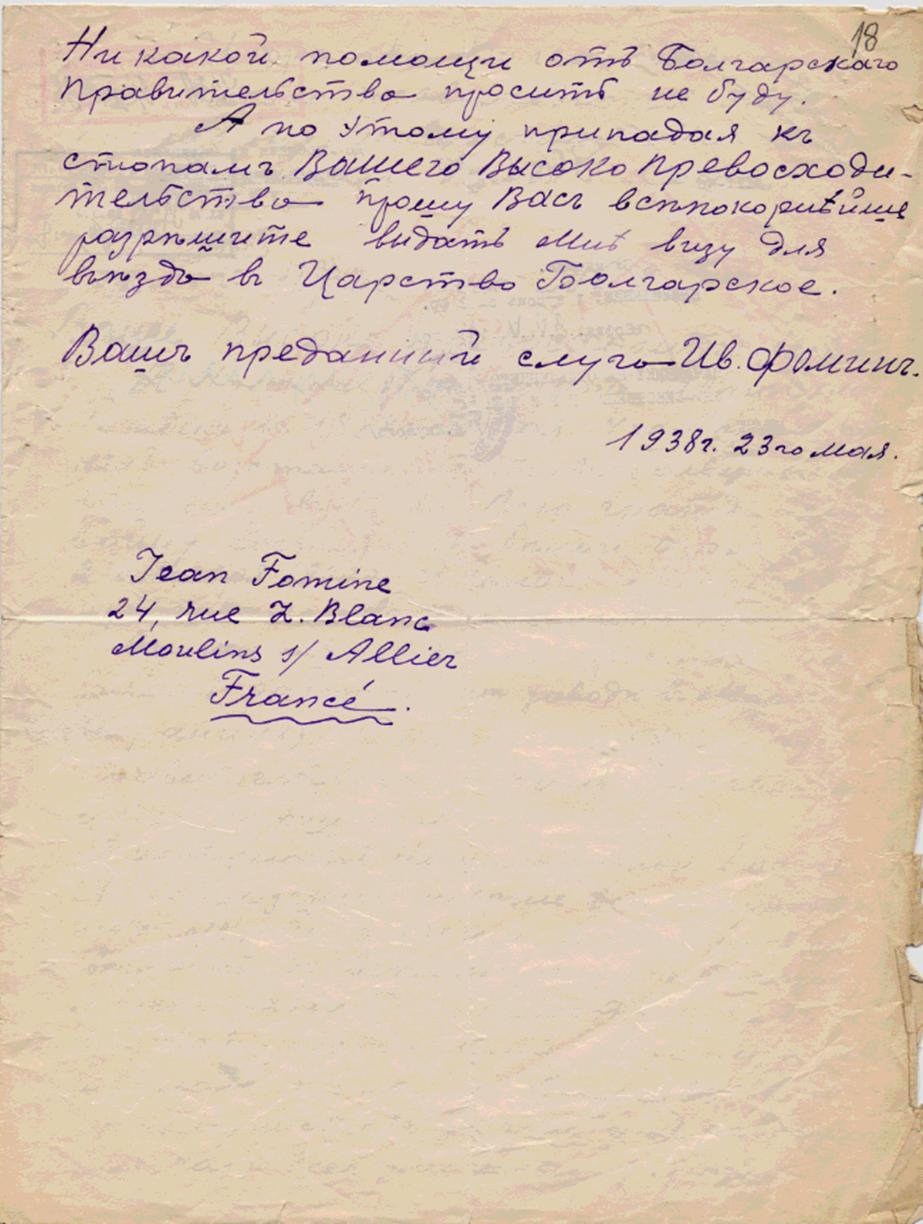 18
Ни какой помощи отъ Болгарскаго
Правительства просить не буду.
А по этому припадая къ
стопамъ Вашего Высоко Превосходи-
тельства прошу Васъ всепокорнѣйше
разрѣшите выдать мнѣ визу для
въѣзда в Царство Болгарское.
Вашъ преданный слуга Ив. Фоминъ.
1938г. 23го мая.
Jean Fomine
24, rue L. Blanc
Moulins s/ Allier
Francé.